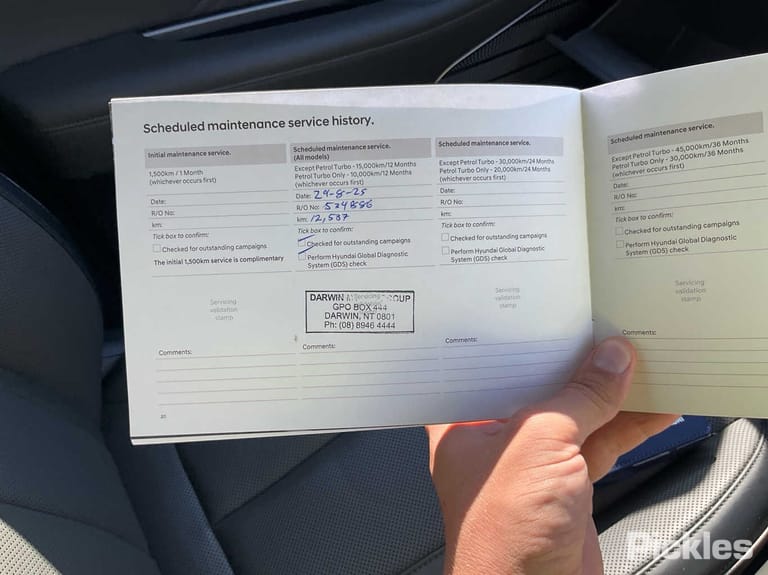 Scheduled maintenance service history.
Initial maintenance service.
1,500km / 1 Month
(whichever occurs first)
Date:
R/O No:
km:
Tick box to confirm:
Checked for outstanding campaigns
The initial 1,500km service is complimentary
Servicing
validation
stamp
Comments:
20
Scheduled maintenance service.
(All models)
Except Petrol Turbo - 15,000km/12 Months
Petrol Turbo Only - 10,000km/12 Months
(whichever occurs first)
Date: 29-8-25
R/O No: 524886
km: 12,587
Tick box to confirm:
Checked for outstanding campaigns
Perform Hyundai Global Diagnostic
System (GDS) check
Servicing
DARWIN GROUP
GPO BOX 444
DARWIN, NT 0801
Ph: (08) 8946 4444
Comments:
Scheduled maintenance service.
Except Petrol Turbo - 30,000km/24 Months
Petrol Turbo Only - 20,000km/24 Months
(whichever occurs first)
Date:
R/O No:
km:
Tick box to confirm:
Checked for outstanding campaigns
Perform Hyundai Global Diagnostic
System (GDS) check
Servicing
validation
stamp
Comments:
Scheduled maintenance service.
Except Petrol Turbo - 45,000km/36 Months
Petrol Turbo Only - 30,000km/36 Months
(whichever occurs first)
Date:
R/O No:
km:
Tick box to confirm:
Checked for outstanding campaigns
Perform Hyundai Global Diagnostic
System (GDS) check
Servicing
validation
stamp
Comments:
Pickles